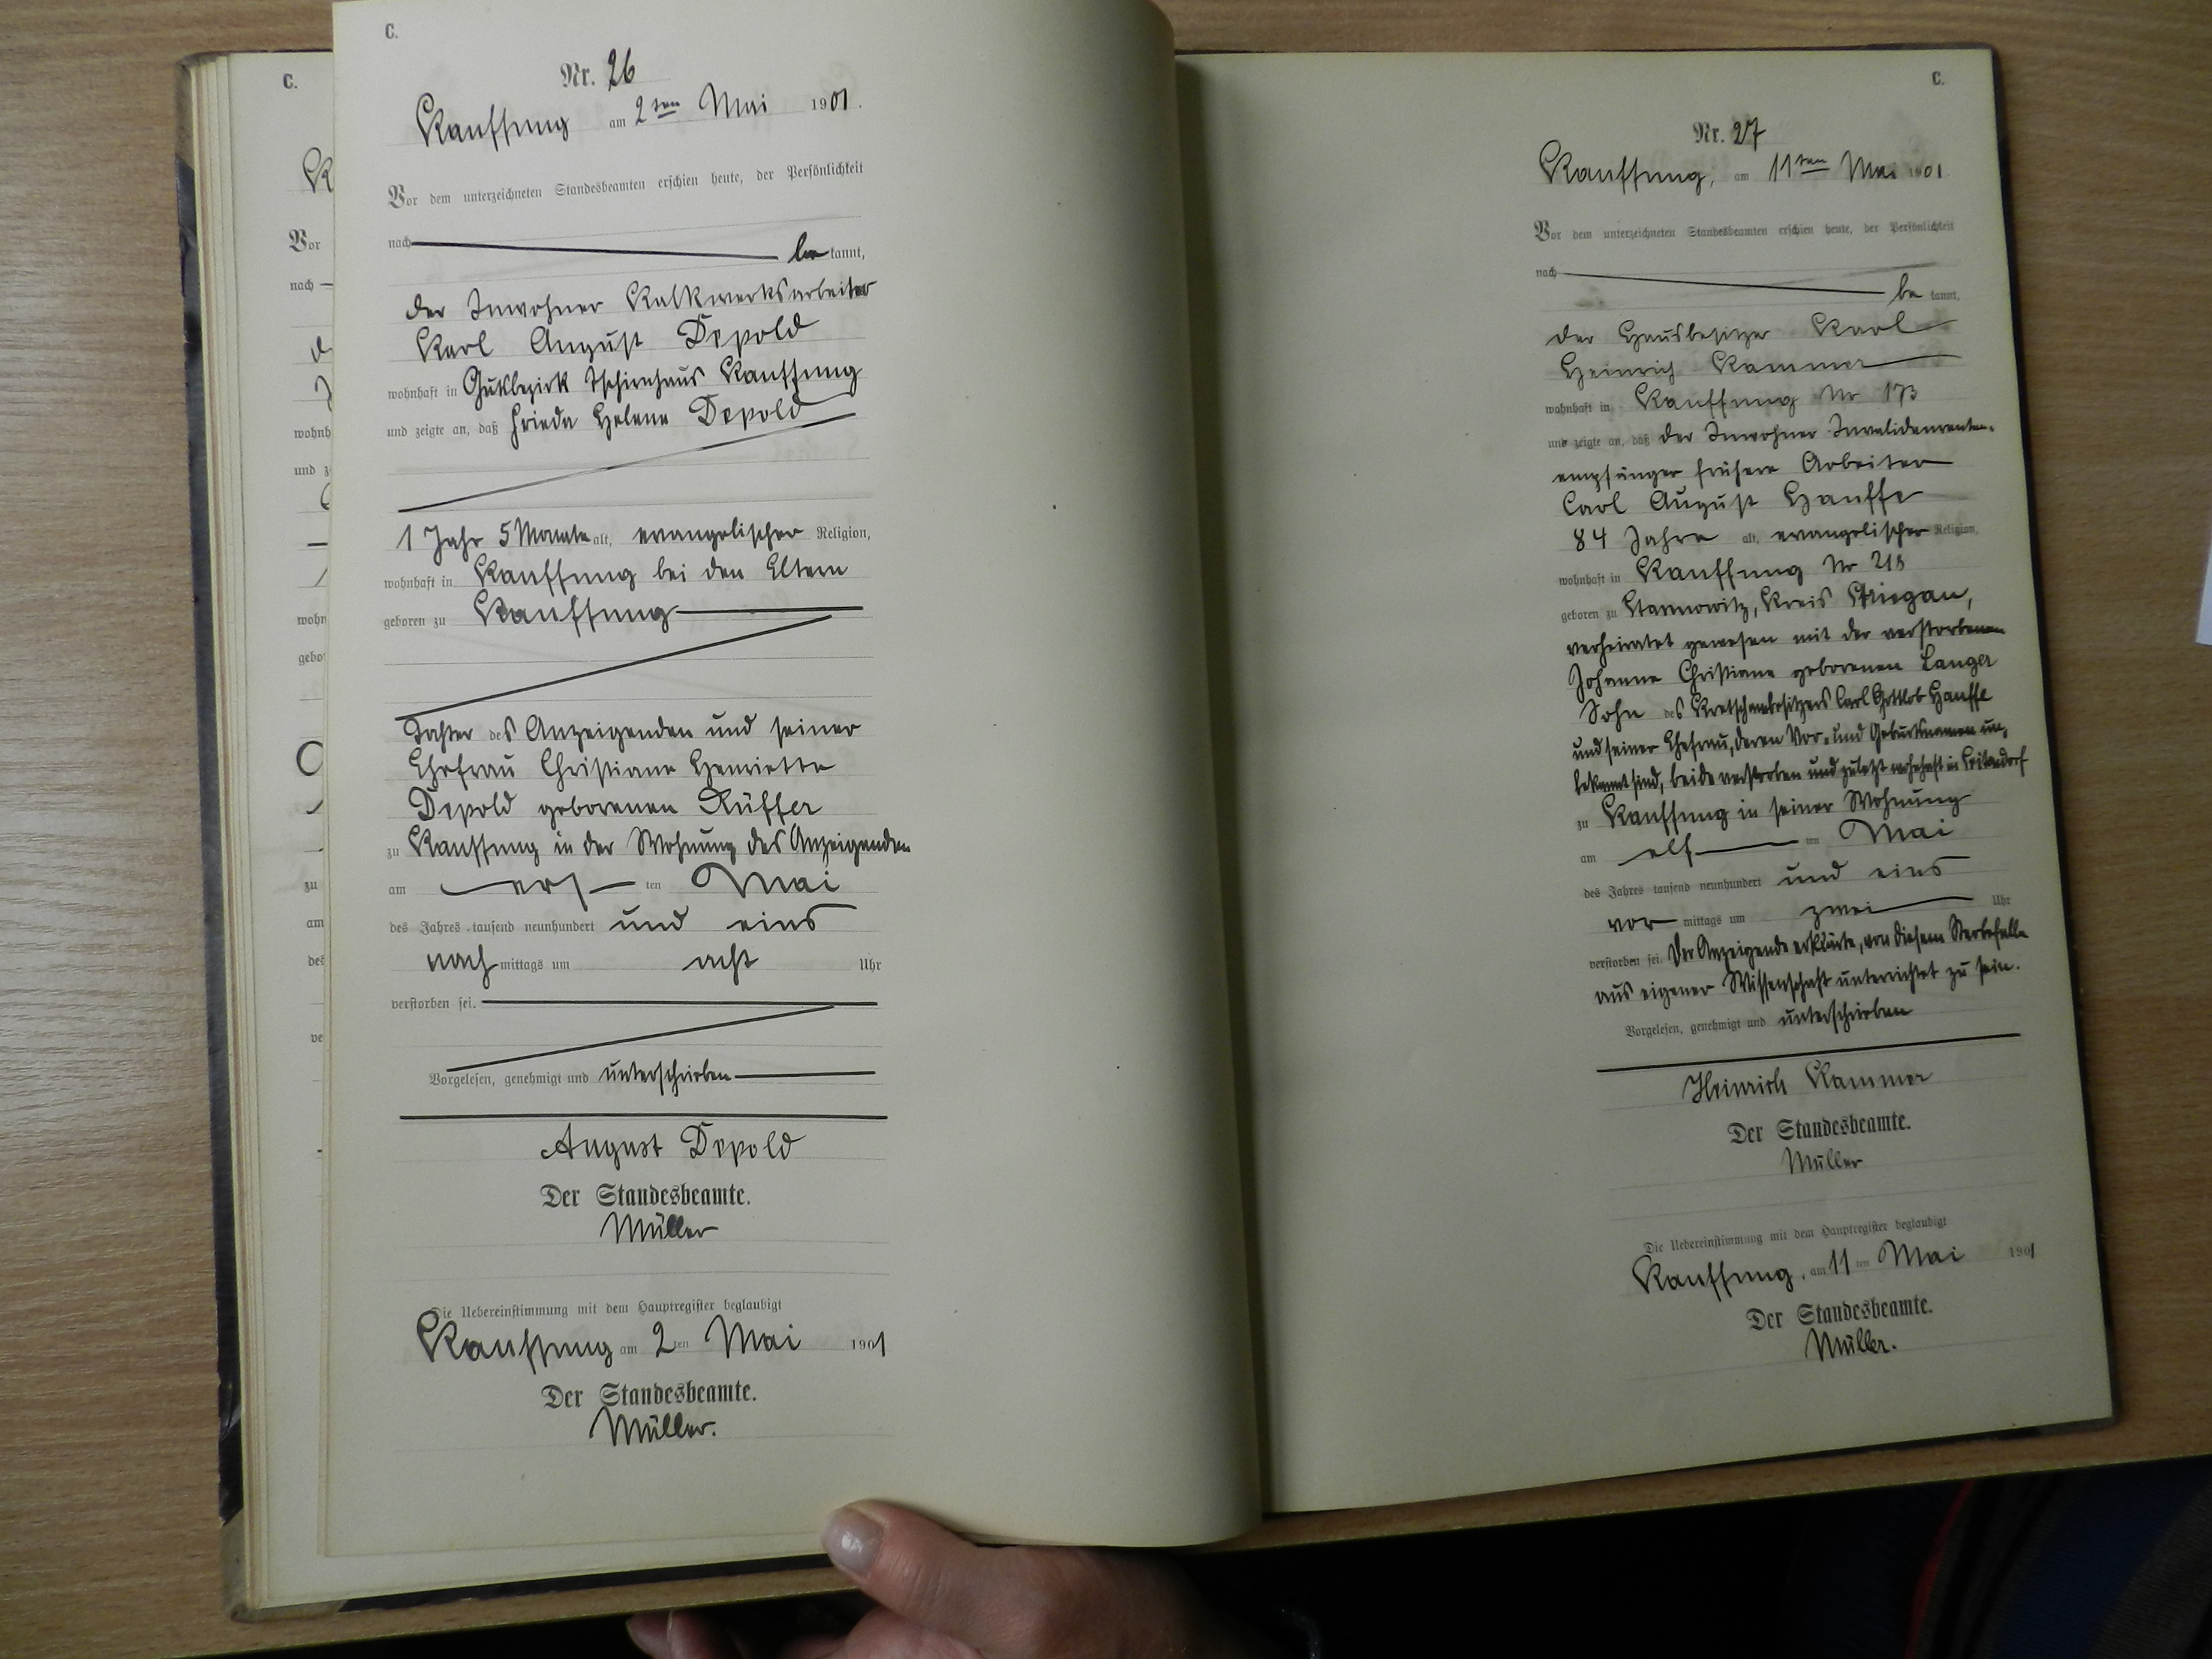 C.
Nr. 26
Kauffung am 2ten Mai 1901.
Vor dem unterzeichneten Standesbeamten erschien heute, der Persönlichkeit
nach be kannt,
der Inwohner Kalkwerksarbeiter
Karl August Depold
wohnhaft in Gutsbezirk Tschirnhaus Kauffung
und zeigte an, daß Frieda Helene Depold
1 Jahr 5 Monate alt, evangelischer Religion,
wohnhaft in Kauffung bei den Eltern
geboren zu Kauffung
Tochter des Anzeigenden und seiner
Ehefrau Christiane Henriette
Depold geborenen Rüffer
zu Kauffung in der Wohnung des Anzeigenden
am ers ten Mai
des Jahres tausend neunhundert und eins
nach mittags um acht Uhr
verstorben sei.
Vorgelesen, genehmigt und unterschrieben
August Depold
Der Standesbeamte.
Müller
Die Uebereinstimmung mit dem Hauptregister beglaubigt
Kauffung am 2ten Mai 1901
Der Standesbeamte.
Müller.
C.
Nr. 27
Kauffung, am 11ten Mai 1901.
Vor dem unterzeichneten Standesbeamten erschien heute, der Persönlichkeit
nach be kannt,
der Hausbesitzer Karl
Heinrich Kammer
wohnhaft in Kauffung Nr 173
und zeigte an, daß der Inwohner Invalidenrenten-
empfänger frühere Arbeiter
Carl August Hauffe
84 Jahre alt, evangelischer Religion,
wohnhaft in Kauffung Nr 218
geboren zu Stannowitz, Kreis Striegau,
verheiratet gewesen mit der verstorbenen
Johanne Christiane geborenen Langer
Sohn des Kretschambesitzers Carl Gottlob Hauffe
und seiner Ehefrau, deren Vor- und Geburtsnamen un-
bekannt sind, beide verstorben und zuletzt wohnhaft in
zu Kauffung in seiner Wohnung
am elf ten Mai
des Jahres tausend neunhundert und eins
vor mittags um zwei Uhr
verstorben sei. Der Anzeigende erklärte, von diesem Sterbefalle
aus eigener Wissenschaft unterrichtet zu sein.
Vorgelesen, genehmigt und unterschrieben
Heinrich Kammer
Der Standesbeamte.
Müller
Die Uebereinstimmung mit dem Hauptregister beglaubigt
Kauffung, am 11ten Mai 1901
Der Standesbeamte.
Müller.